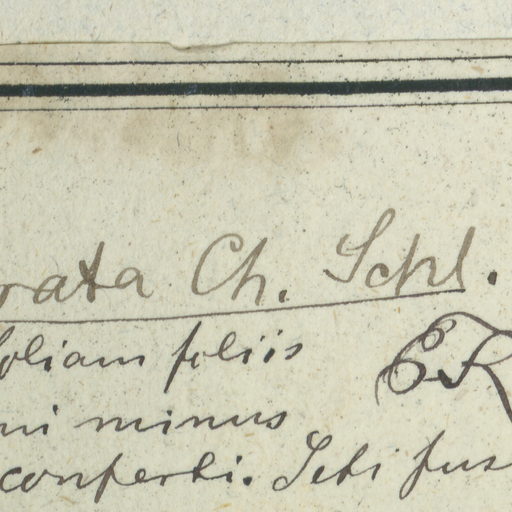 rata Ch. Schl.
foliam foliis
ni minus
conferti. Seti fus